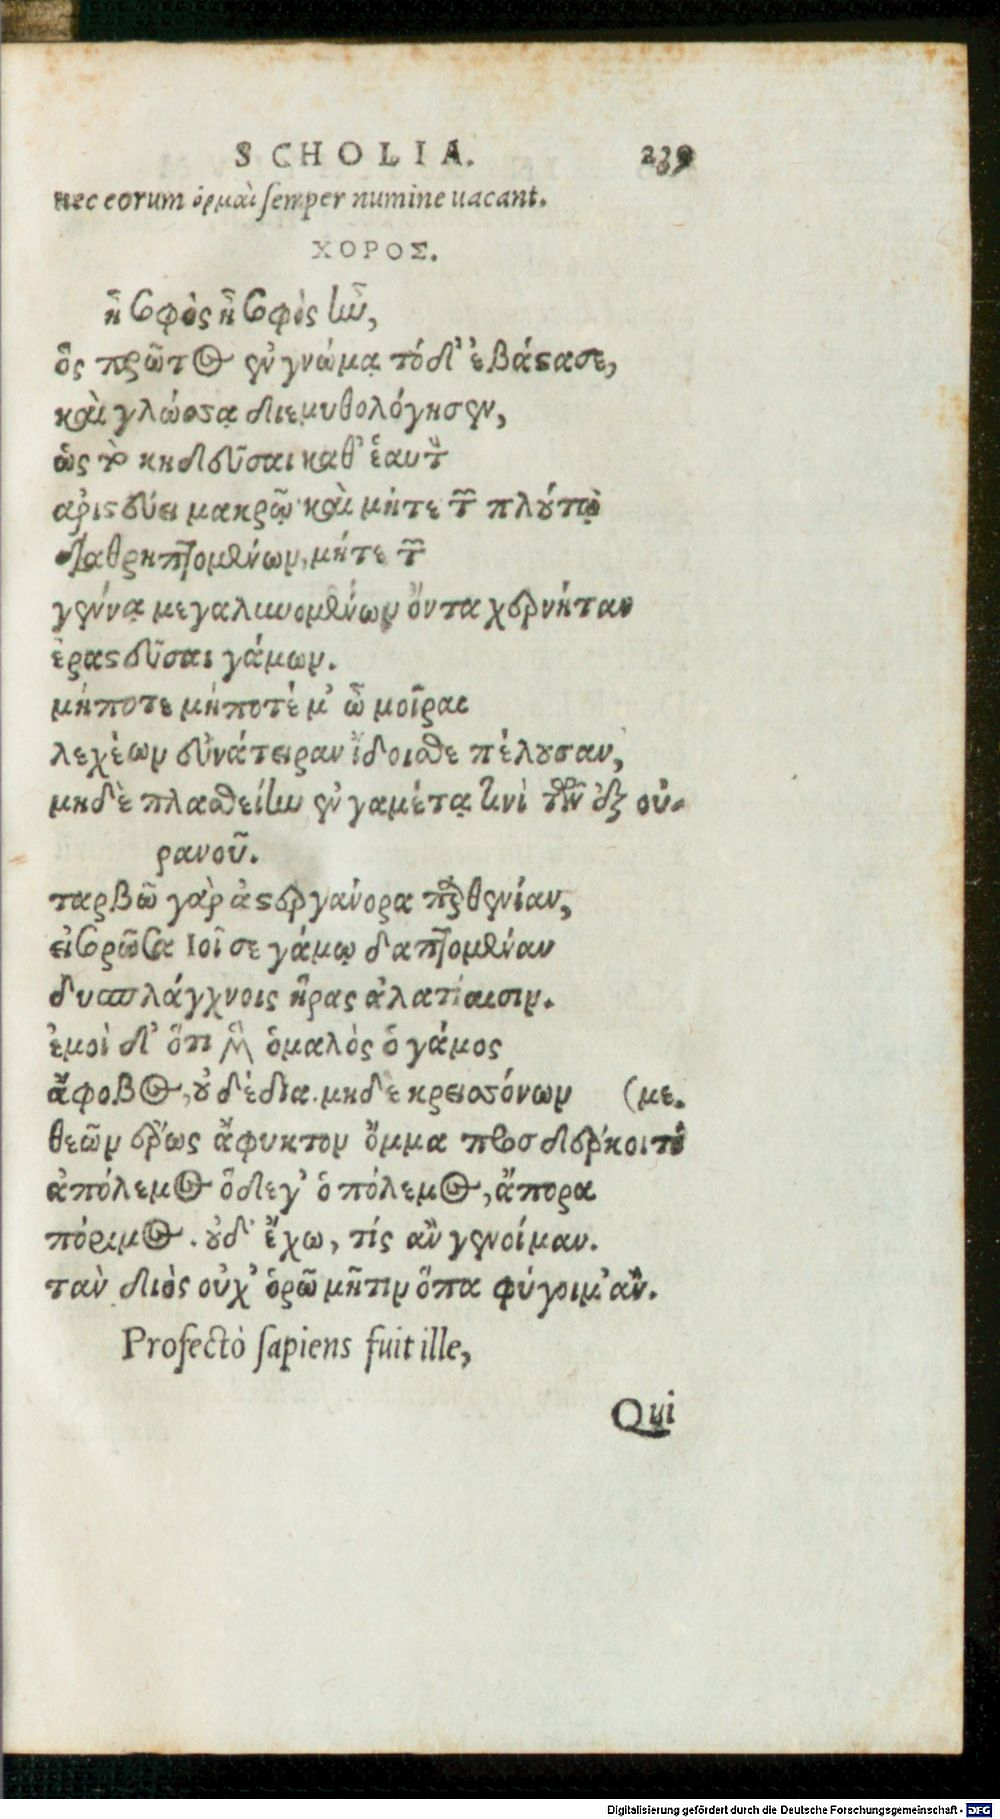 SCHOLIA. 239
nec eorum ὁρμαὶ semper numine uacant.
ΧΟΡΟΣ.
ἦ σοφὸς ἦ σοφὸς ἦν,
ὃς πρῶτος ἐν γνώμᾳ τόδ' ἐβάστασε,
καὶ γλώσσᾳ διεμυθολόγησεν,
ὡς τὸ κηδεῦσαι καθ' ἑαυτὸν
ἀριστεύει μακρῷ καὶ μήτε τῶν πλούτῳ
διαθρυπτομένων, μήτε τῶν
γέννᾳ μεγαλυνομένων ὄντα χερνήταν
ἐραστεῦσαι γάμων.
μήποτε μήποτέ μ' ὦ μοῖραι
λεχέων εὐνάτειραν ἴδοισθε πέλουσαν,
μηδὲ πλασθείην ἐν γαμέτᾳ τινὶ τῶν ἐξ οὐ-
ρανοῦ.
ταρβῶ γὰρ ἀστεργάνορα παρθενίαν,
εἰσορῶσα Ιοῖ σε γάμῳ δαπτομέναν
δυσπλάγχνοις ἥρας ἀλατίαισιν.
ἐμοὶ δ' ὅτι μὲν ὁμαλὸς ὁ γάμος
ἄφοβος, οὐ δέδια. μηδὲ κρεισσόνων (με.
θεῶν ἔρως ἄφυκτον ὄμμα προσδέρκοιτό
ἀπόλεμος ὅδε γ' ὁ πόλεμος, ἄπορα
πόριμος. οὐδ' ἔχω, τίς ἂν γενοίμαν.
τὰν διὸς οὐχ' ὁρῶ μῆτιν ὅπα φύγοιμ' ἄν.
Profectò sapiens fuit ille,
Qui
Digitalisierung gefördert durch die Deutsche Forschungsgemeinschaft - DFG